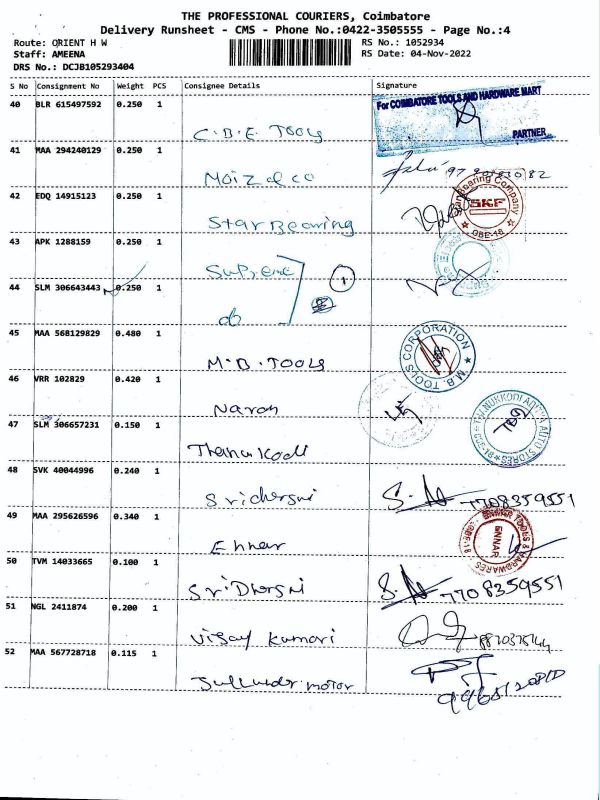 THE PROFESSIONAL COURIERS, Coimbatore
Delivery Runsheet - CMS - Phone No.:0422-3505555 - Page No.:4
Route: ORIENT H W
RS No.: 1052934
Staff: AMEENA
RS Date: 04-Nov-2022
DRS No.: DCJB105293404
S No Consignment No Weight PCS Consignee Details Signature
40 BLR 615497592 0.250 1
For COIMBATORE TOOLS AND HARDWARE MART
PARTNER
C.B.E TOOLS
41 MAA 294240129 0.250 1
Moiz & co
42 EDQ 14915123 0.250 1
Bearing Company
SKF
CBE-18
Star Bearing
43 APK 1288159 0.250 1
Supreme
1
44 SLM 306643443 0.250 1
do
45 MAA 568129829 0.480 1
M.B. TOOLS CORPORATION
M.B. TOOLS
46 VRR 102829 0.420 1
Naran
47 SLM 306657231 0.150 1
AUTO STORES
48 SVK 40044996 0.240 1
7708359551
49 MAA 295626596 0.340 1
ENNAR TOOLS & HARDWARES
ENNAR
Ennar
50 TVM 14033665 0.100 1
7708359551
51 NGL 2411874 0.200 1
Vijay Kumari
52 MAA 567728718 0.115 1
motor